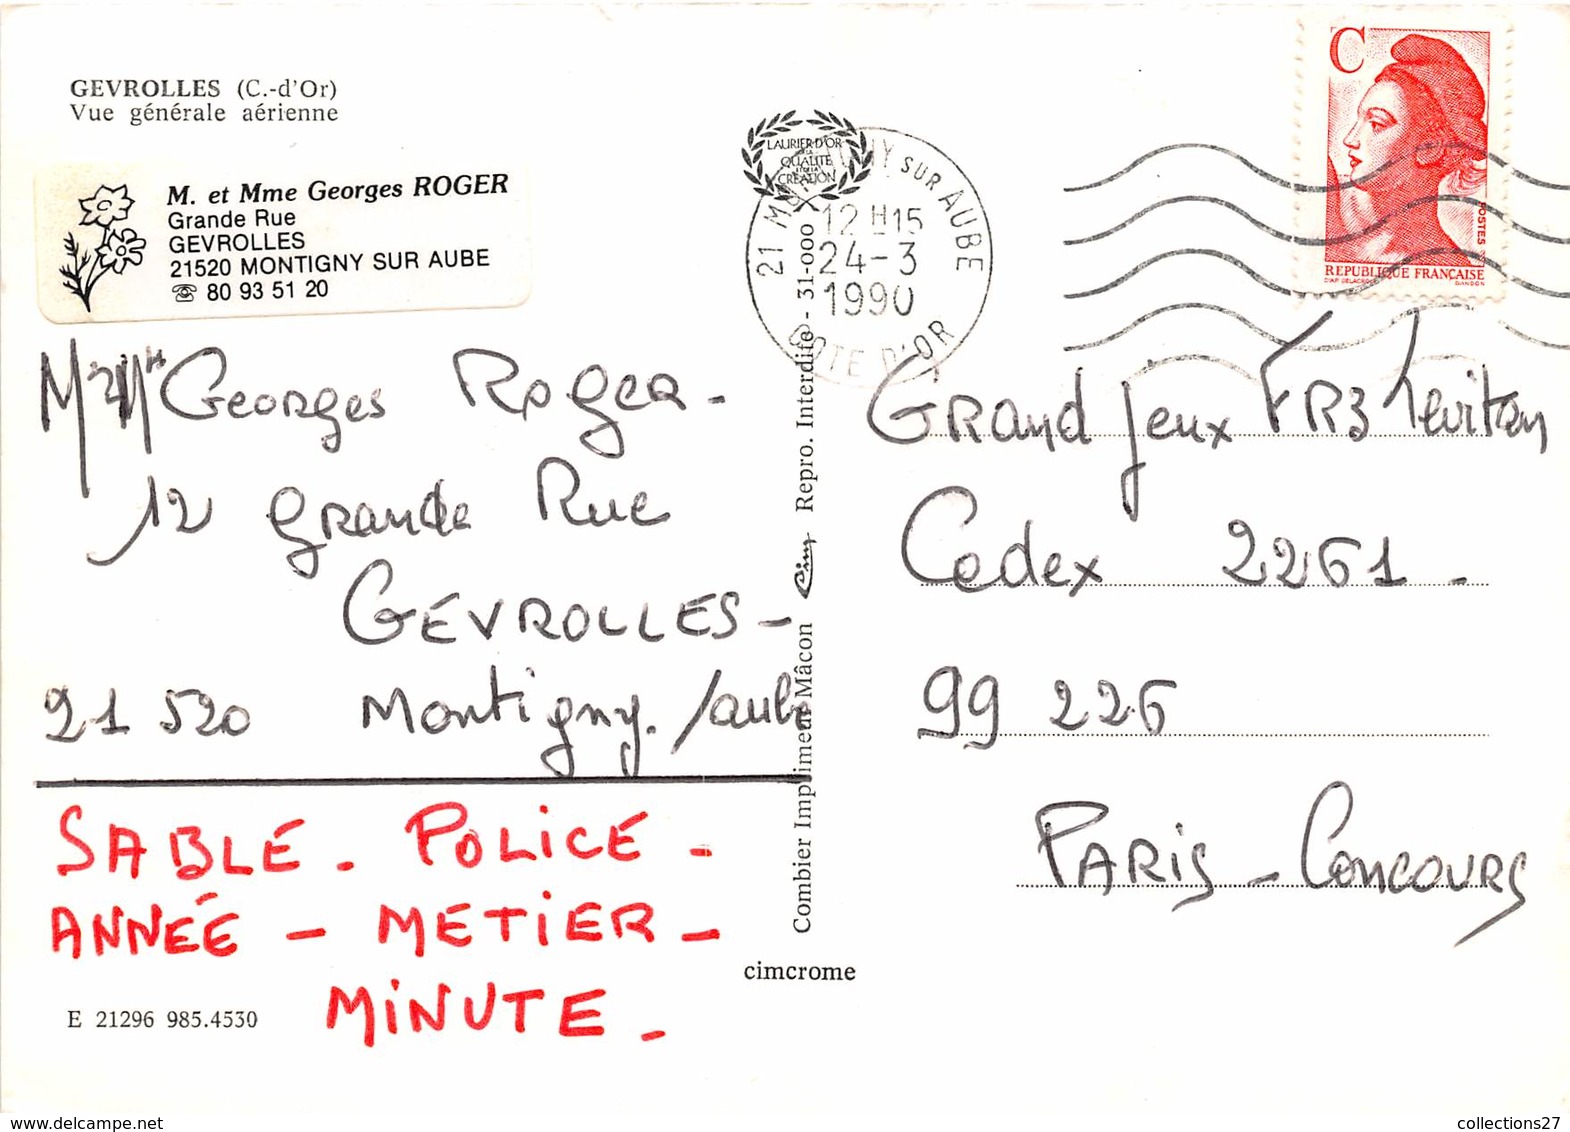 GEVROLLES (C.-d'Or)
Vue générale aérienne
M. et Mme Georges ROGER
Grande Rue
GEVROLLES
21520 MONTIGNY SUR AUBE
☏ 80 93 51 20
Georges Roger -
12 grande Rue
GEVROLLES -
21 520 Montigny. /aube
SABLE - POLICE -
ANNÉE - METIER -
MINUTE -
E 21296 985.4530
LAURIER D'OR
DE LA
QUALITÉ
ET DE LA
CRÉATION
21 MONTIGNY SUR AUBE
12 H15
24-3
1990
COTE D'OR
Combier Imprimeur Mâcon Cim Repro. Interdite - 31-000
cimcrome
C
POSTES
REPUBLIQUE FRANÇAISE
D'AP. DELACROIX GANDON
GRand Jeux FR3 Levitan
Cedex 2261 -
99 226
PARIS - CONCOURS
www.delcampe.net
collections27